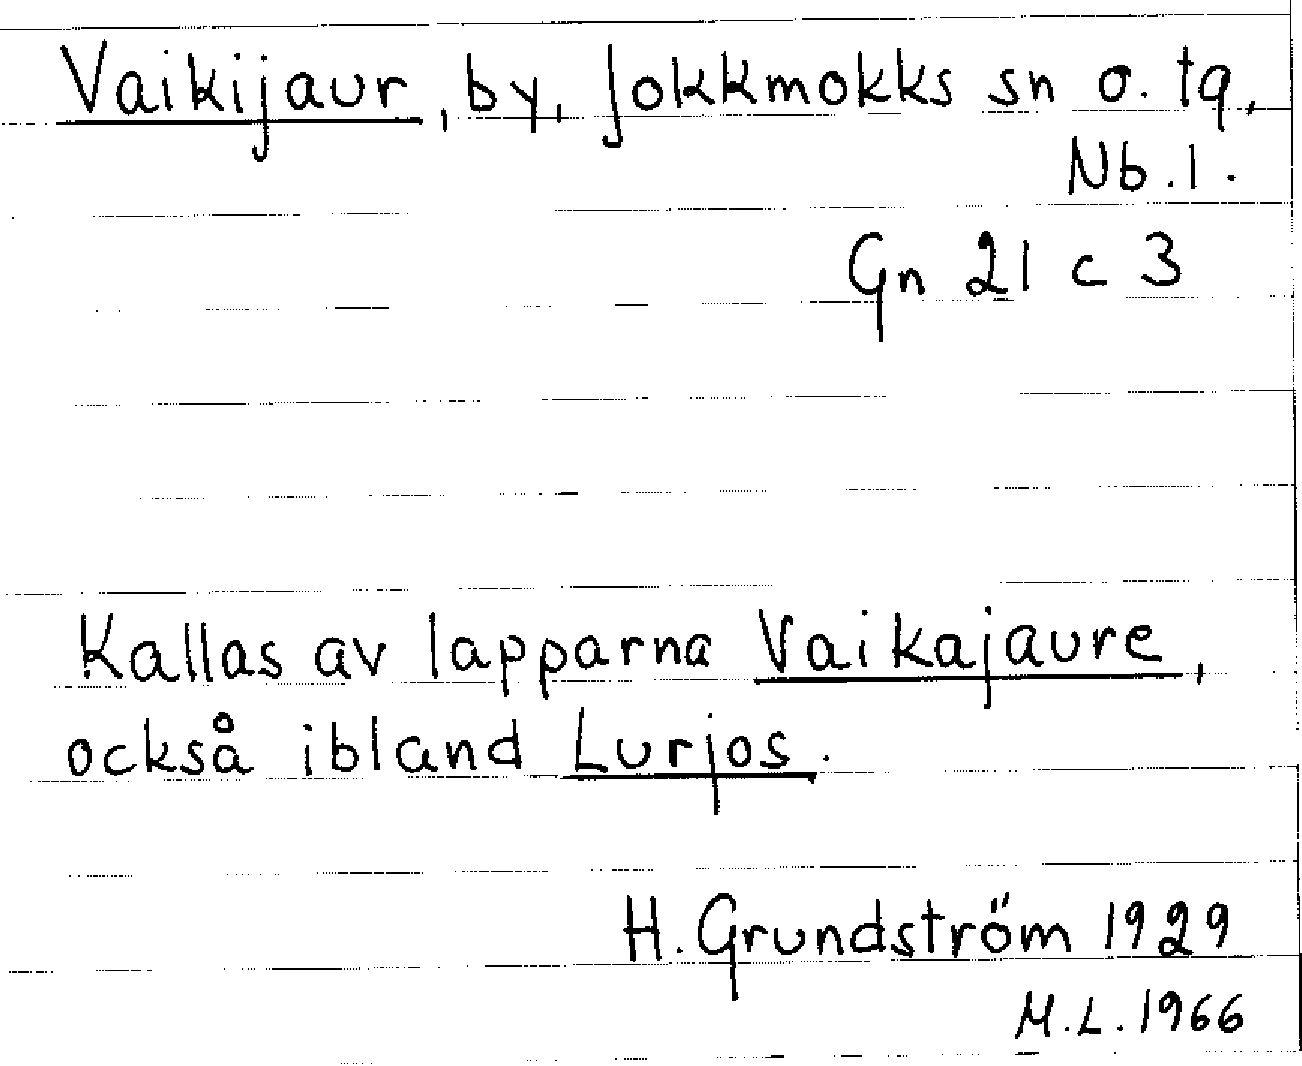 Vaikijaur, by, Jokkmokks sn o. tg,
Nb.l.
Gn 21 c 3
Kallas av lapparna Vaikajaure,
också ibland Lurjos.
H. Grundström 1929
M.L. 1966